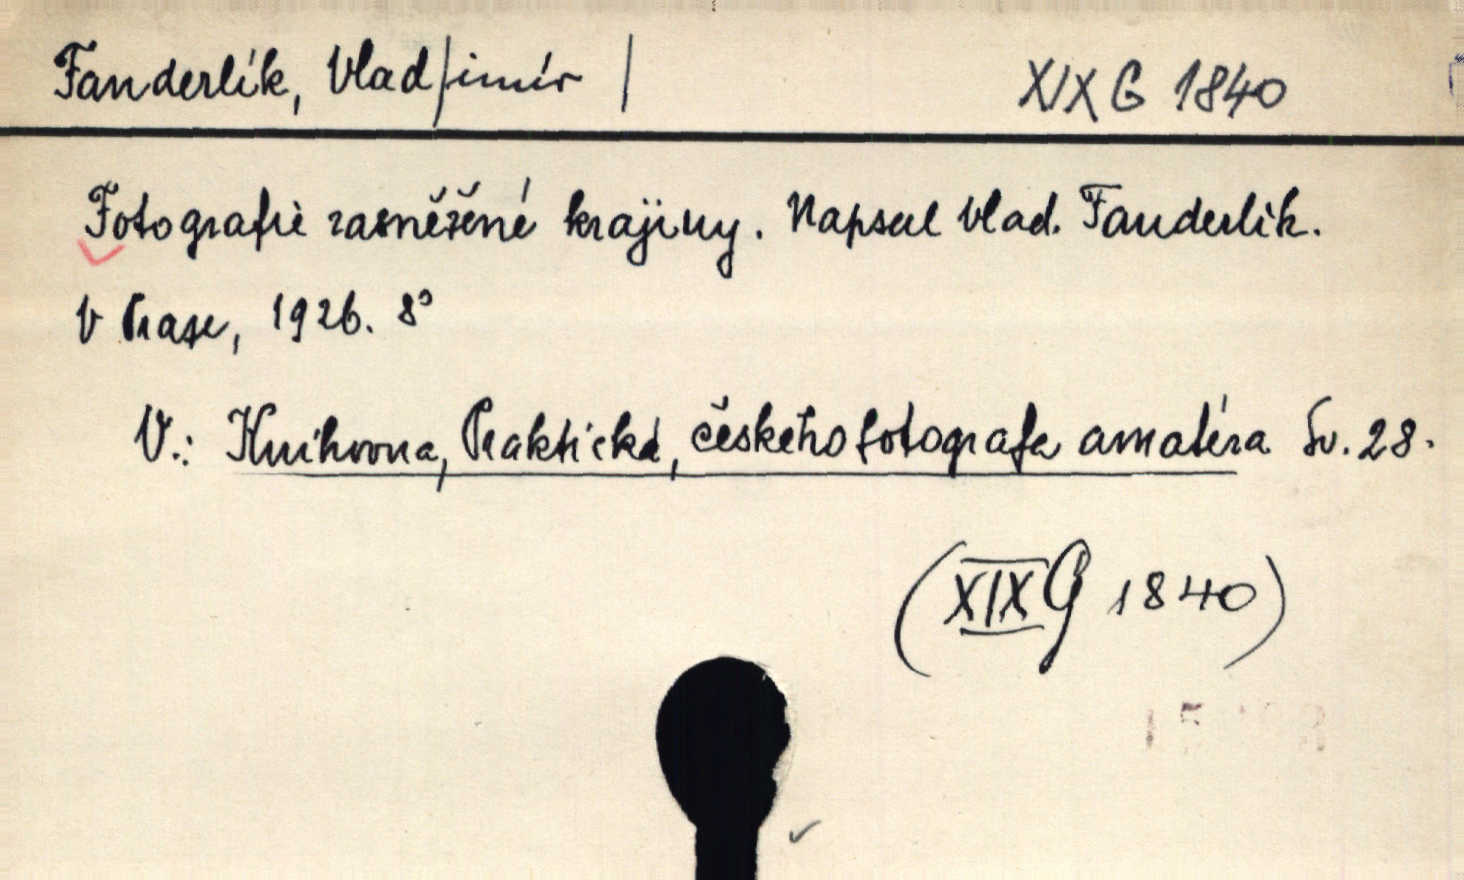 Fanderlík, Vlad/imír/ XIX G 1840
Fotografie zasněžené krajiny. Napsal Vlad. Fanderlik.
V Praze, 1926. 8°
V.: Knihovna, Praktická, českého fotografa amatéra Sv. 28.
(XIX G 1840)